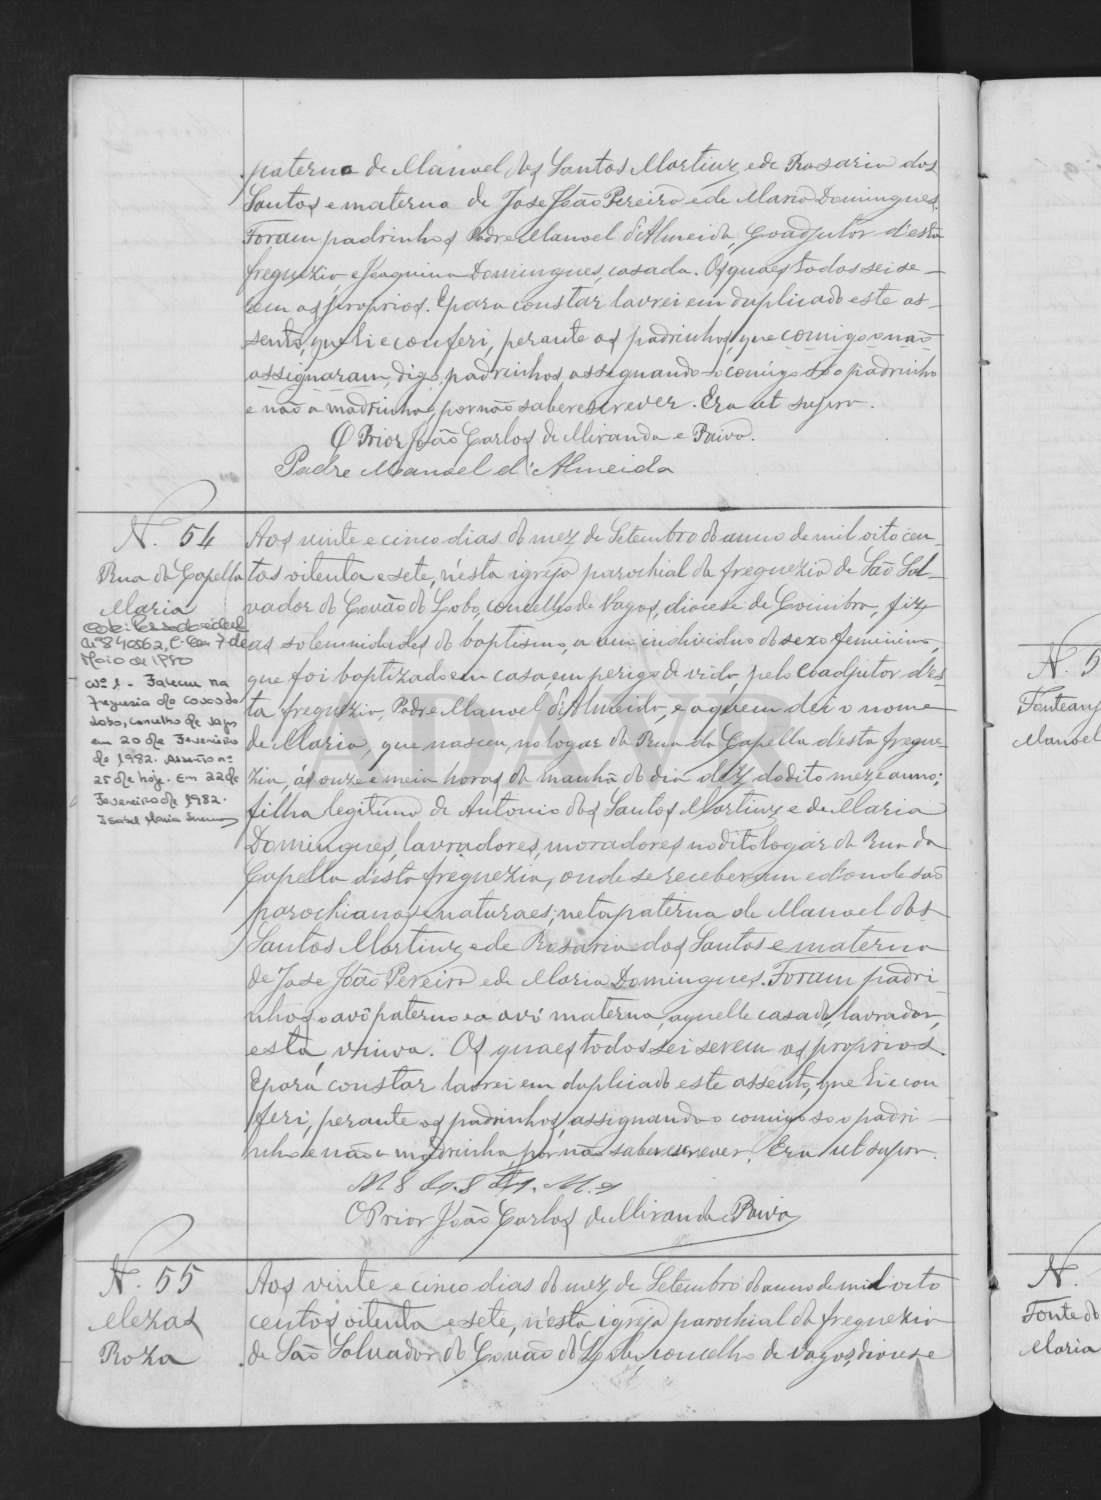 paterna de Manoel dos Santos Martins, e de Rosaria dos
Santos e materna de Jose João Pereira e de Maria Domingues.
Foram padrinhos Padre Manoel d'Almeida, Coadjutor d'esta
freguezia e Joaquina Domingues, casada. Os quaes todos sei se-
rem os proprios. E para constar lavrei em duplicado este as-
sento, que li e conferi, perante os padrinhos, que comigo o não
assignaram, digo, padrinhos, assignando-o comigo só o padrinho
e não a madrinha, por não saber escrever. Era ut supra.
O Prior João Carlos de Miranda e Paiva.
Padre Manoel d'Almeida
N. 54
Rua da Capella
Maria
Nº 840862, C
Maio de 1980
Nº 1 - Faleceu na
freguesia de Covão do
Lobo, concelho de Vagos
em 20 de Fevereiro
de 1982. Assento nº
25 de hoje. Em 22 de
Fevereiro de 1982.
Aos vinte e cinco dias do mez de Setembro do anno de mil oito cen-
tos oitenta e sete, n'esta igreja parochial da freguezia de São Sal-
vador do Covão do Lobo, concelho de Vagos, diocese de Coimbra, fiz
as solemnidades do baptismo, a um individuo do sexo feminino,
que foi baptizado em casa, em perigo de vida, pelo Coadjutor d'es-
ta freguezia, Padre Manoel d'Almeida, e a quem dei o nome
de Maria, que nasceu, no logar da Rua da Capella d'esta fregue-
zia, ás onze e meia horas da manhã do dia dez do dito mez e anno;
filha legitima de Antonio dos Santos Martins e de Maria
Domingues, lavradores, moradores no dito logar da Rua da
Capella d'esta freguezia, onde se receberam e d'onde são
parochianos e naturaes; neta paterna de Manoel dos
Santos Martins, e de Rosaria dos Santos e materna
de Jose João Pereira e de Maria Domingues. Foram padri-
nhos o avô paterno e a avó materna, aquelle casado, lavrador,
esta, viuva. Os quaes todos sei serem os proprios.
E para constar lavrei em duplicado este assento, que li e con
feri, perante os padrinhos, assignando-o comigo só o padri-
nho e não a madrinha, por não saber escrever. Era ut supra.
O Prior João Carlos de Miranda e Paiva
N. 55
Mezas
Roza
Aos vinte e cinco dias do mez de Setembro do anno de mil oito
centos oitenta e sete, n'esta igreja parochial da freguezia
de São Salvador do Covão do Lobo, concelho de Vagos, diocese
N. 5
Manoel
N.
Fonte do
Maria
ADAVR